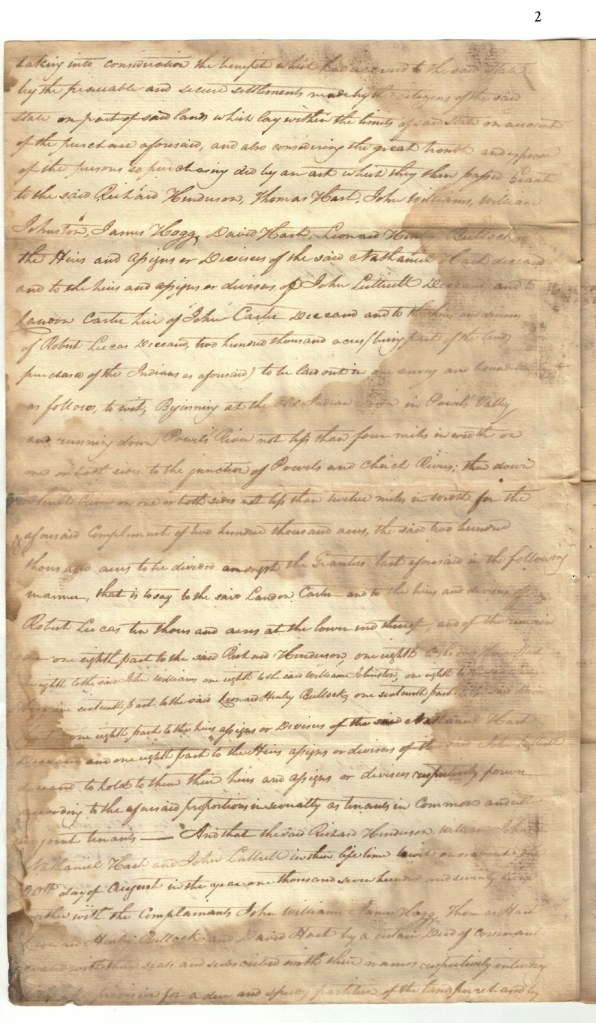 2
taking into consideration the benefit which had accrued to the said State
by the peaceable and secure settlements made by the citizens of the said
State on part of said lands which lay within the limits of said State on account
of the purchase aforesaid, and also considering the great trouble and expence
of the persons so purchasing did by an act which they then passed Grant
to the said Richard Henderson, Thomas Hart, John Williams, William
Johnston, James Hogg, David Hart, Leonard Henley Bullock,
the Heirs and assigns or Devisees of the said Nathaniel Hart deceased
and to the heirs and assigns or devisees of John Luttrell Deceased and to
Landon Carter heir of John Carter Deceased and to the heirs and devisees
of Robert Lucas Deceased, two hundred thousand acres (being part of the lands
purchase of the Indians as aforesaid) to be laid out in one survey and bounded
as follows, to wit, Beginning at the old Indian Town in Powels Valley
and running down Powels River not less than four miles in width on
one or both sides to the junction of Powels and Clinch Rivers; then down
Clinch River on one or both sides not less than twelve miles in width for the
aforesaid Compliment of two hundred thousand acres, the said two hundred
thousand acres to be divided amongst the Grantees last aforesaid in the following
manner, that is to say to the said Landon Carter and to the heirs and devisees of
Robert Lucas ten thousand acres at the lower end thereof, and of the remain
one eighth part to the said Richard Henderson, one eighth
eighth to the said John Williams one eighth to the said William Johnston, one eighth to
one sixteenth part to the said Leonard Henley Bullock, one sixteenth part to the said
one eighth part to the heirs assigns or Devisees of the said Nathaniel Hart
Deceased and one eighth part to the Heirs assigns or devisees of the said John Luttrell
deceased to hold to them their heirs and assigns or devisees respectively forever
according to the aforesaid proportions in severalty as tenants in Common and not
as joint tenants — And that the said Richard Henderson William Johnston
Nathaniel Hart and John Luttrell in their life time to wit on or about the
20th day of August in the year one thousand seven hundred and seventy
together with the Complainants John Williams James Hogg Thomas Hart
Leonard Henley Bullock and David Hart by a certain Deed of Covenant
sealed with their seals and subscribed with their names respectively
provision for a due and speedy partition of the lands purchased by